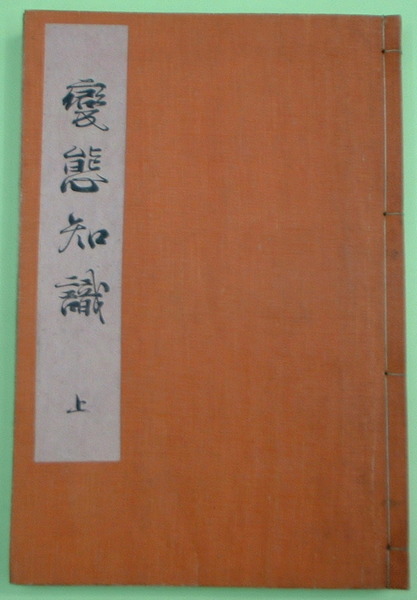 変態知識
上